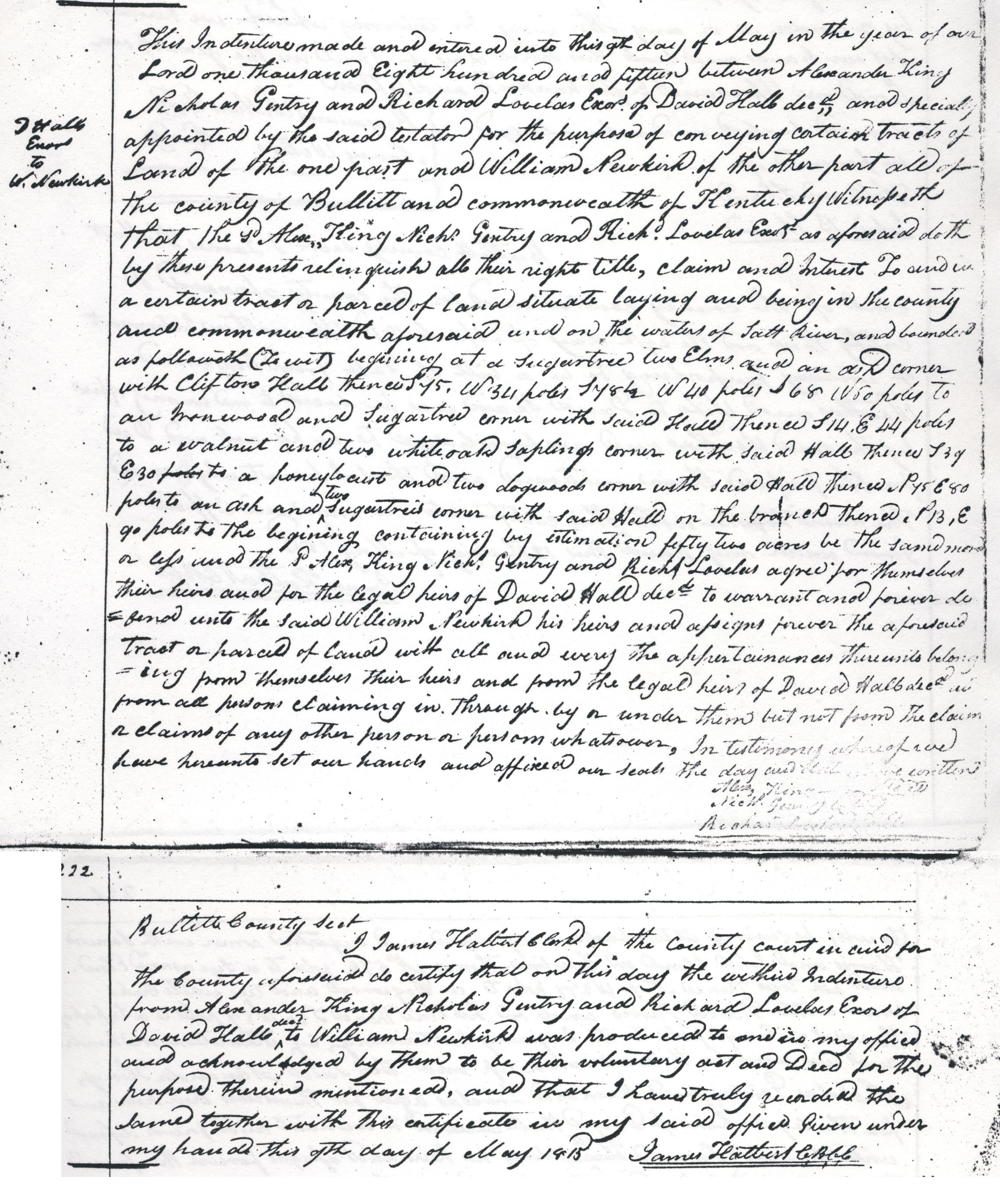 D Halls
Exors
to
W. Newkirk
This Indenture made and entered into this 9th day of May in the year of our
Lord one thousand Eight hundred and fifteen between Alexander King
Nicholas Gentry and Richard Lovelas Exors. of David Hall decd., and specially
appointed by the said testator for the purpose of conveying certain tracts of
Land of the one part and William Newkirk of the other part all of
the county of Bullitt and commonwealth of Kentucky Witnesseth
that the sd Alex, King Nichs. Gentry and Richd. Lovelas Exors as aforesaid doth
by these presents relinquish all their right title, claim and Interest To and in
a certain tract or parcel of land situate laying and being in the county
and commonwealth aforesaid and on the waters of Salt River, and bounded
as followeth (To wit) begining at a Sugartree two Elms and an ash corner
with Clifton Hall thence S 75. W 34 poles S 78½ W 40 poles S 68 W 50 poles to
an Ironwood and Sugartree corner with said Hall thence S 14. E 44 poles
to a walnut and two whiteoak saplings corner with said Hall thence S 39
E 30 poles to a honeylocust and two dogwoods corner with said Hall thence N 75 E 80
poles to an ash and two Sugartrees corner with said Hall on the branch thence N 13, E
90 poles to the begining containing by estimation fifty two acres be the same more
or less and the sd Alex, King Nichs. Gentry and Richd Lovelas agree for themselves
their heirs and for the legal heirs of David Hall decd to warrant and forever de
=fend unto the said William Newkirk his heirs and assigns forever the aforesaid
Tract or parcel of land with all and every the appertainances thereunto belong
=ing from themselves their heirs and from the legal heirs of David Hall decd
from all persons claiming in. through. by or under them but not from the claim
or claims of any other person or persons whatsoever, In testimony whereof we
have hereunto set our hands and affixed our seals the day and written
Alex, King
Nichs. Gentry
Richard
222
Bullitt County Sect
I James Halbert Clerk of the county court in and for
the County aforesaid do certify that on this day the within Indenture
from Alexander King Nicholas Gentry and Richard Lovelas Exors of
David Halls decd to William Newkirk was produced to me in my office
and acknowledged by them to be their voluntary act and Deed for the
purpose therein mentioned, and that I have truly recorded the
same together with this certificate in my said office Given under
my hand this 9th day of May 1815 James Halbert C.B.C.C